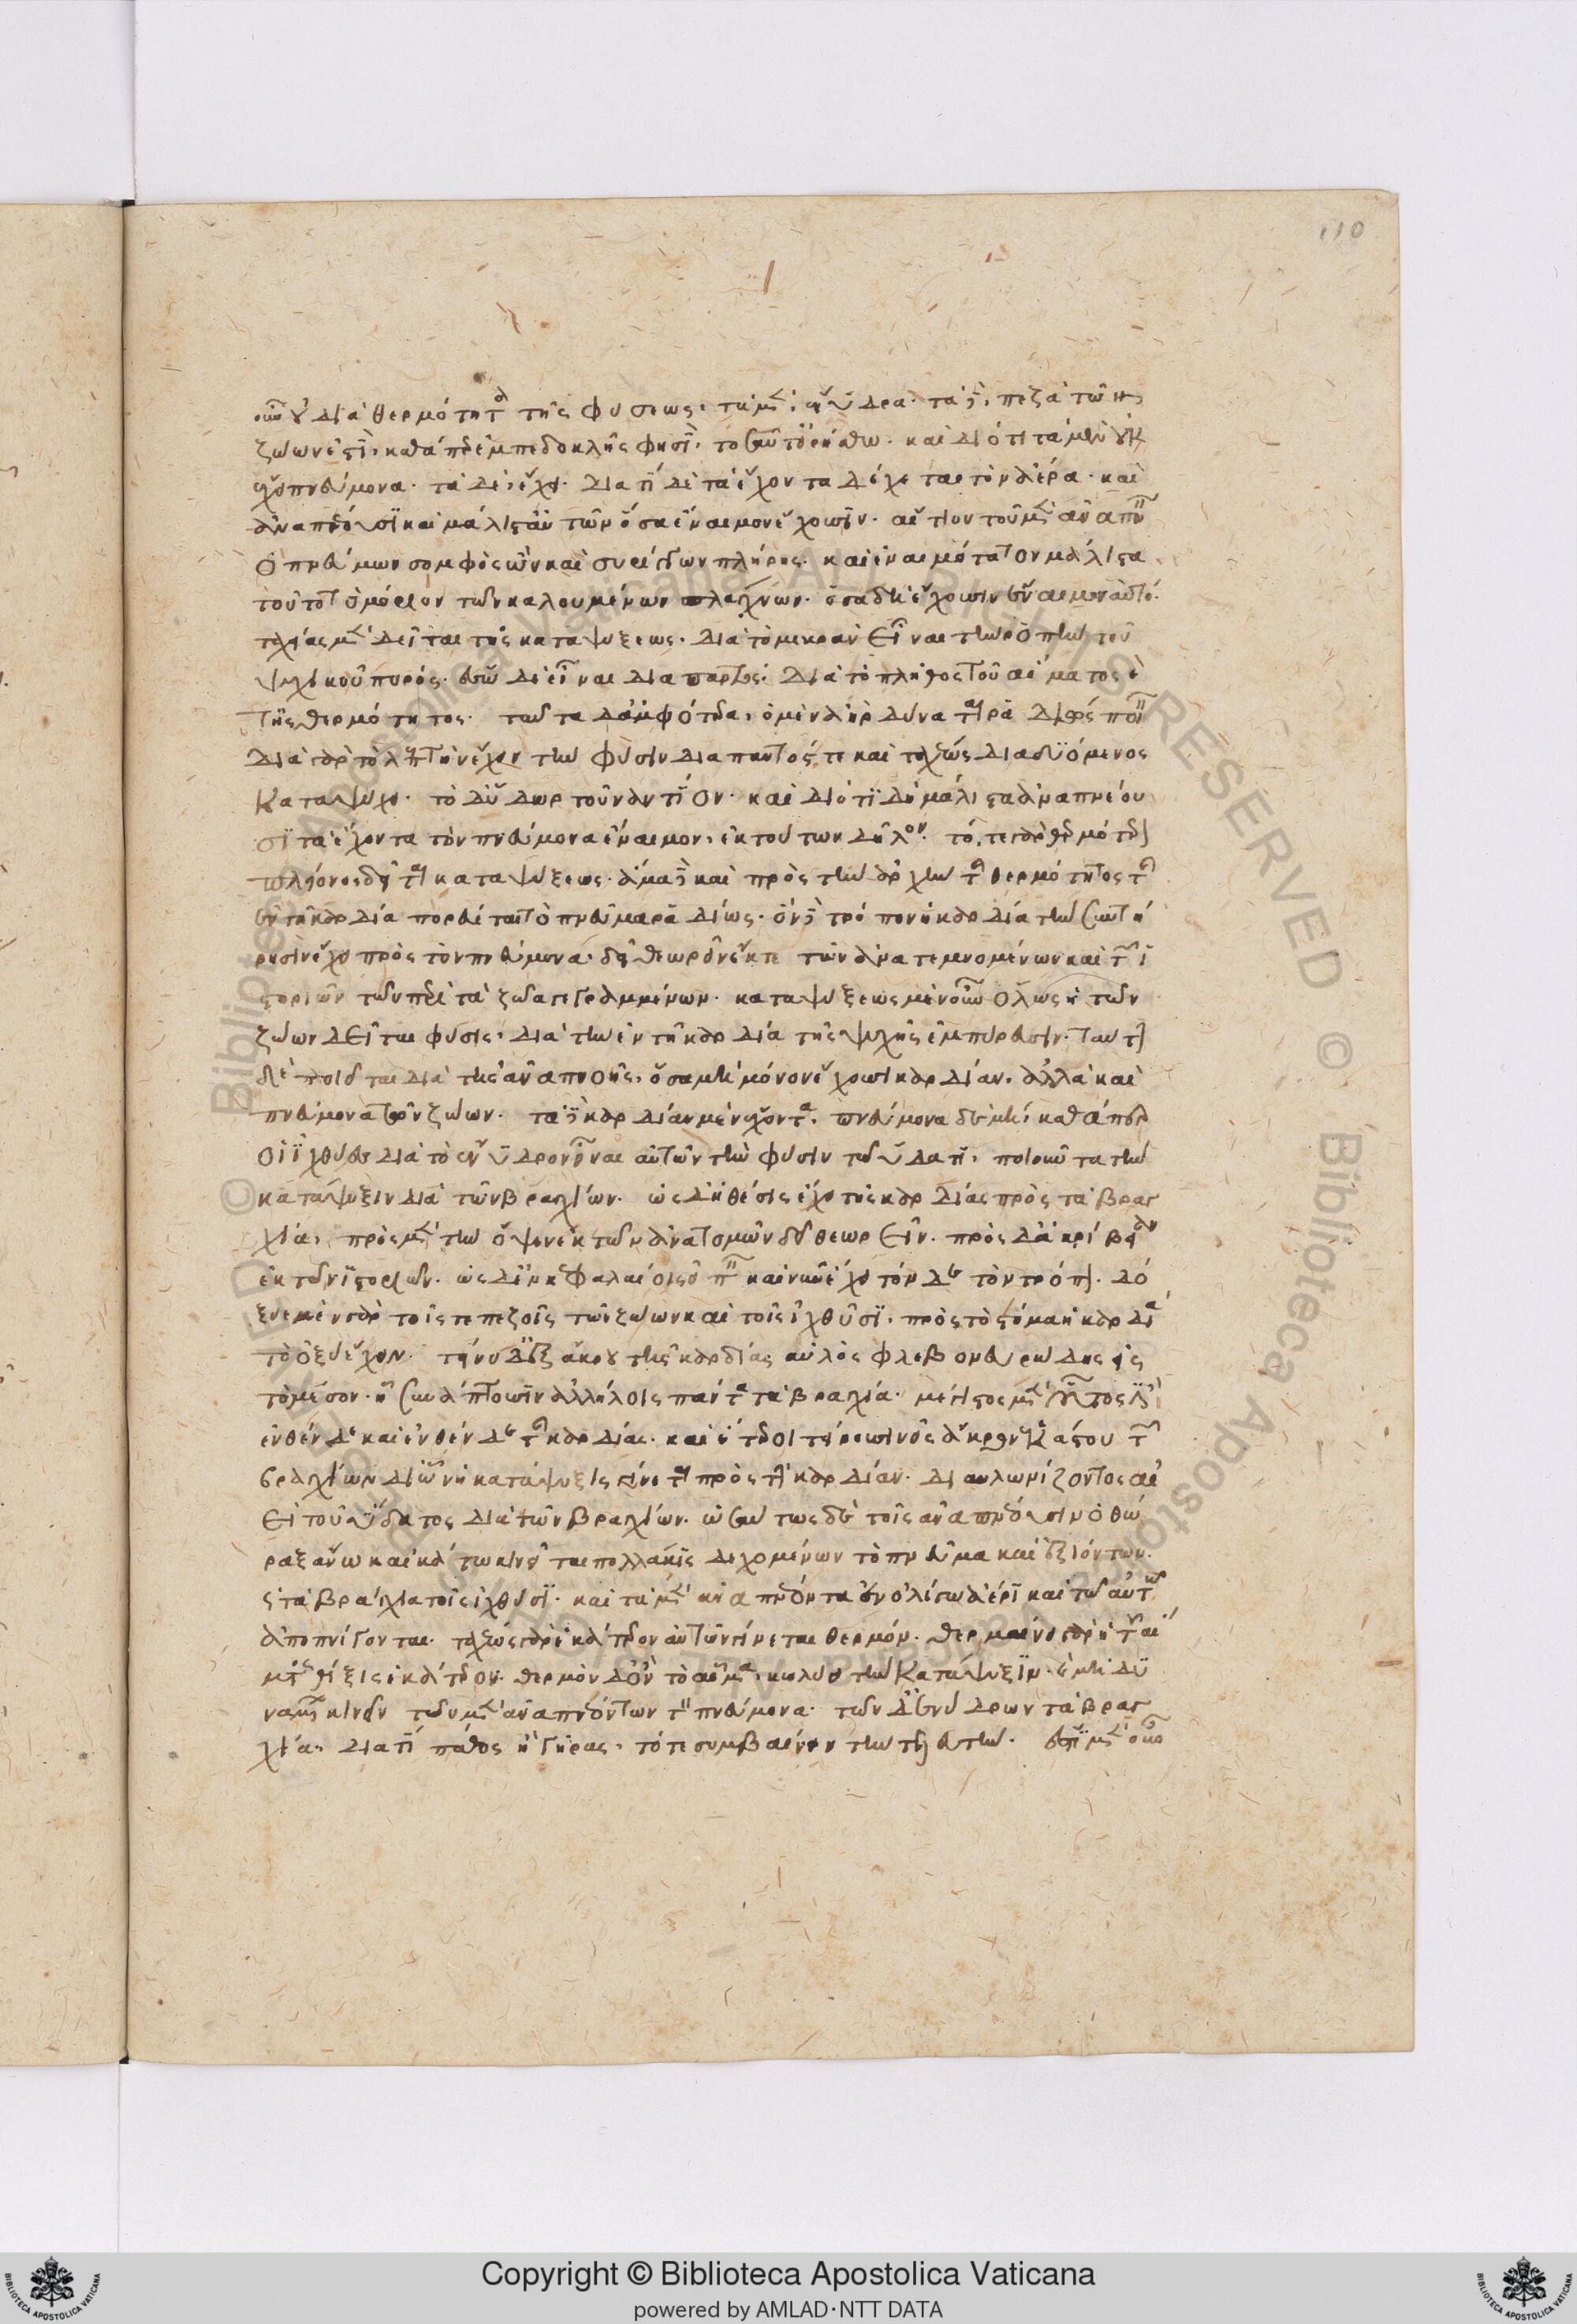 οὖν οὐ διὰ θερμότητα τῆς φύσεως, τὰ μὲν, ἔνυδρα· τὰ δὲ, πεζὰ τῶν
ζώων ἐστὶ, καθάπερ ἐμπεδοκλῆς φησὶ, τοσαῦτ' εἰρήσθω. καὶ διότι τὰ μὲν οὐκ
ἔχει πνεύμονα· τὰ δὲ, ἔχει. Διατί δὲ τὰ ἔχοντα δέχεται τὸν ἀέρα· καὶ
ἀναπνέουσι καὶ μάλιστα αὐτῶν ὅσα ἔναιμον ἔχουσιν. αἴτιον τοῦ μὲν ἀναπνεῖν
ὁ πνεύμων σομφὸς ὢν καὶ συρίγγων πλήρης· καὶ ἐναιμότατον μάλιστα
τοῦτο τὸ μόριον τῶν καλουμένων σπλάγχνων. ὅσα δὴ ἔχουσιν ἔναιμον αὐτό·
ταχείας μὲν δεῖται τῆς καταψύξεως. διὰ τὸ μικρὰν εἶναι τὴν ῥοπὴν τοῦ
ψυχικοῦ πυρός. εἴσω δ' εἰσιέναι διὰ παντὸς. διὰ τὸ πλῆθος τοῦ αἵματος καὶ
τῆς θερμότητος. ταῦτα δ' ἀμφότερα, ὁ μὲν ἀὴρ δύναται ῥαδίως ποιεῖν
διὰ γὰρ τὸ λεπτὴν ἔχειν τὴν φύσιν διαπαντός τε καὶ ταχέως διαδυόμενος
καταψύχει· τὸ δ' ὕδωρ τοὐναντίον. καὶ διότι δὴ μάλιστα ἀναπνέου
σι τὰ ἔχοντα τὸν πνεύμονα ἔναιμον, ἐκ τούτων δῆλον. τό, τε γὰρ θερμότερον
πλείονος δεῖται καταψύξεως. ἅμα δὲ καὶ πρὸς τὴν ἀρχὴν τῆς θερμότητος τῆς
ἐν τῇ καρδία πορεύεται τὸ πνεῦμα ῥαδίως. ὃν δὲ τρόπον ἡ καρδία τὴν σύντρη
ρησιν ἔχει πρὸς τὸν πνεύμονα· δεῖ θεωρεῖν ἔκ τε τῶν ἀνατεμνομένων καὶ τῶν ἱ
στοριῶν τῶν περὶ τὰ ζῶα γεγραμμένων. καταψύξεως μὲν οὖν ὅλως ἡ τῶν
ζώων δεῖται φύσις, διὰ τὴν ἐν τῇ καρδία τῆς ψυχῆς ἐμπύρευσιν. ταύτην
δὲ ποιεῖται διὰ τῆς ἀναπνοῆς, ὅσα μὴ μόνον ἔχουσι καρδίαν, ἀλλὰ καὶ
πνεύμονα τῶν ζώων. τὰ δὲ καρδίαν μὲν ἔχοντα, πνεύμονα δὲ μὴ, καθάπερ
οἱ ἰχθύες διὰ τὸ ἔνυδρον εἶναι αὐτῶν τὴν φύσιν τῶ ὕδατι, ποιοῦνται τὴν
κατάψυξιν διὰ τῶν βραγχίων. ὡς δ' ἡ θέσις ἔχει τῆς καρδίας πρὸς τὰ βραγ
χία, πρὸς μὲν τὴν ὄψιν ἐκ τῶν ἀνατομῶν δεῖ θεωρεῖν. πρὸς δ' ἀκρίβειαν
ἐκ τῶν ἱστοριῶν. ὡς δ' ἐν κεφαλαίοις εἰπεῖν καὶ νῦν ἔχει τόνδε τὸν τρόπον. δό
ξειε μὲν γὰρ τοῖς τε πεζοῖς τῶν ζώων καὶ τοῖς ἰχθύσι, πρὸς τὸ στόμα ἡ καρδία
τὸ ὀξὺ ἔχειν· τείνει δ' ἐξ ἄκρου τῆς καρδίας αὐλὸς φλεβονευρώδης εἰς
τὸ μέσον· ᾗ συνάπτουσιν ἀλλήλοις πάντα τὰ βραγχία. μέγιστος μὲν οὗτός ἐστιν
ἔνθεν δὲ καὶ ἔνθεν δὲ τῆς καρδίας. καὶ ἕτεροι τείνουσιν εἰς ἄκρον ἑκάστου τῶν
βραγχίων δι' ὧν ἡ κατάψυξις γίνεται πρὸς τὴν καρδίαν. διαυλωνίζοντος αἰ
εὶ τοῦ ὕδατος διὰ τῶν βραγχίων. ὡσαύτως δὲ τοῖς ἀναπνέουσιν ὁ θώ
ραξ ἄνω καὶ κάτω κινεῖται πολλάκις δεχομένων τὸ πνεῦμα καὶ ἐξιόντων.
ὡς τὰ βράγχια τοῖς ἰχθύσι. καὶ τὰ μὲν ἀναπνέοντα ἐν ὀλίγω ἀέρι καὶ τῶ αὐτῶ
ἀποπνίγονται. ταχέως γὰρ ἑκάτερον αὐτῶν γίνεται θερμόν. θερμαίνει γὰρ ἡ τοῦ αἵ
ματος θίξις ἑκάτερον. θερμὸν δ' ὂν τὸ αἷμα, κωλύει τὴν κατάψυξιν. καὶ μὴ δυ
ναμένων κινεῖν τῶν μὲν ἀναπνεόντων τὸν πνεύμονα· τῶν δ' ἐνύδρων τὰ βραγ
χία, διά τι πάθος ἢ γῆρας, τότε συμβαίνει τὴν τελευτήν. ἔστι μὲν οὖν